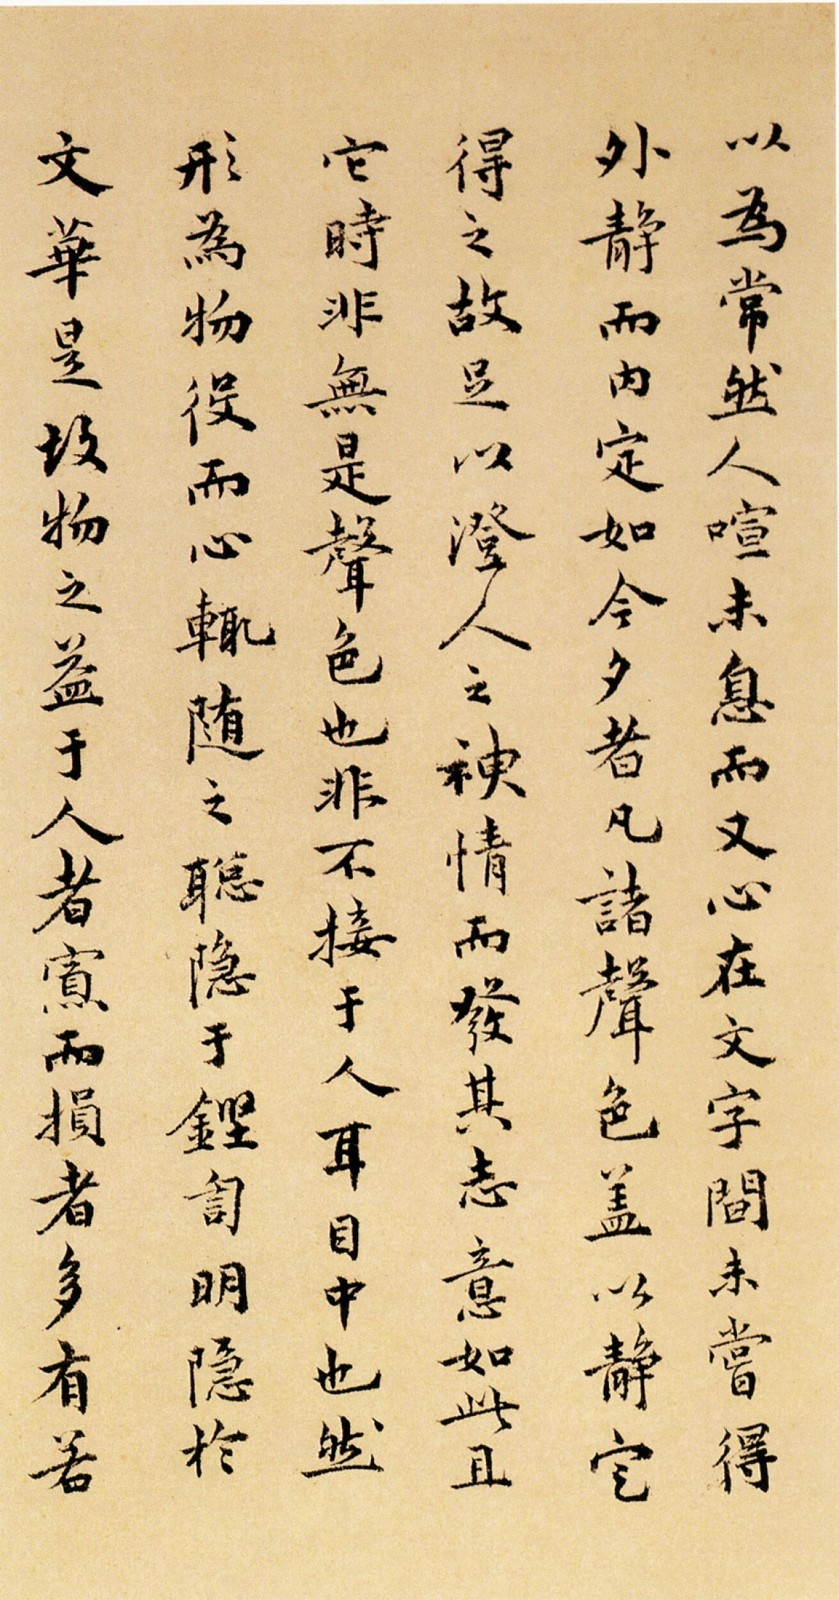 以為常然人喧未息而又心在文字間未嘗得
外靜而内定如今夕者凡諸聲色盖以靜定
得之故足以澄人之神情而發其志意如此且
它時非無是聲色也非不接于人耳目中也然
形為物役而心輒随之聪隐于鏗訇明隐於
文華是故物之益于人者寡而損者多有若